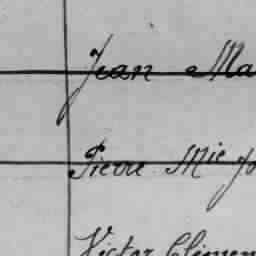 Jean Ma
Pierre Mie Jo
Victor Clémen